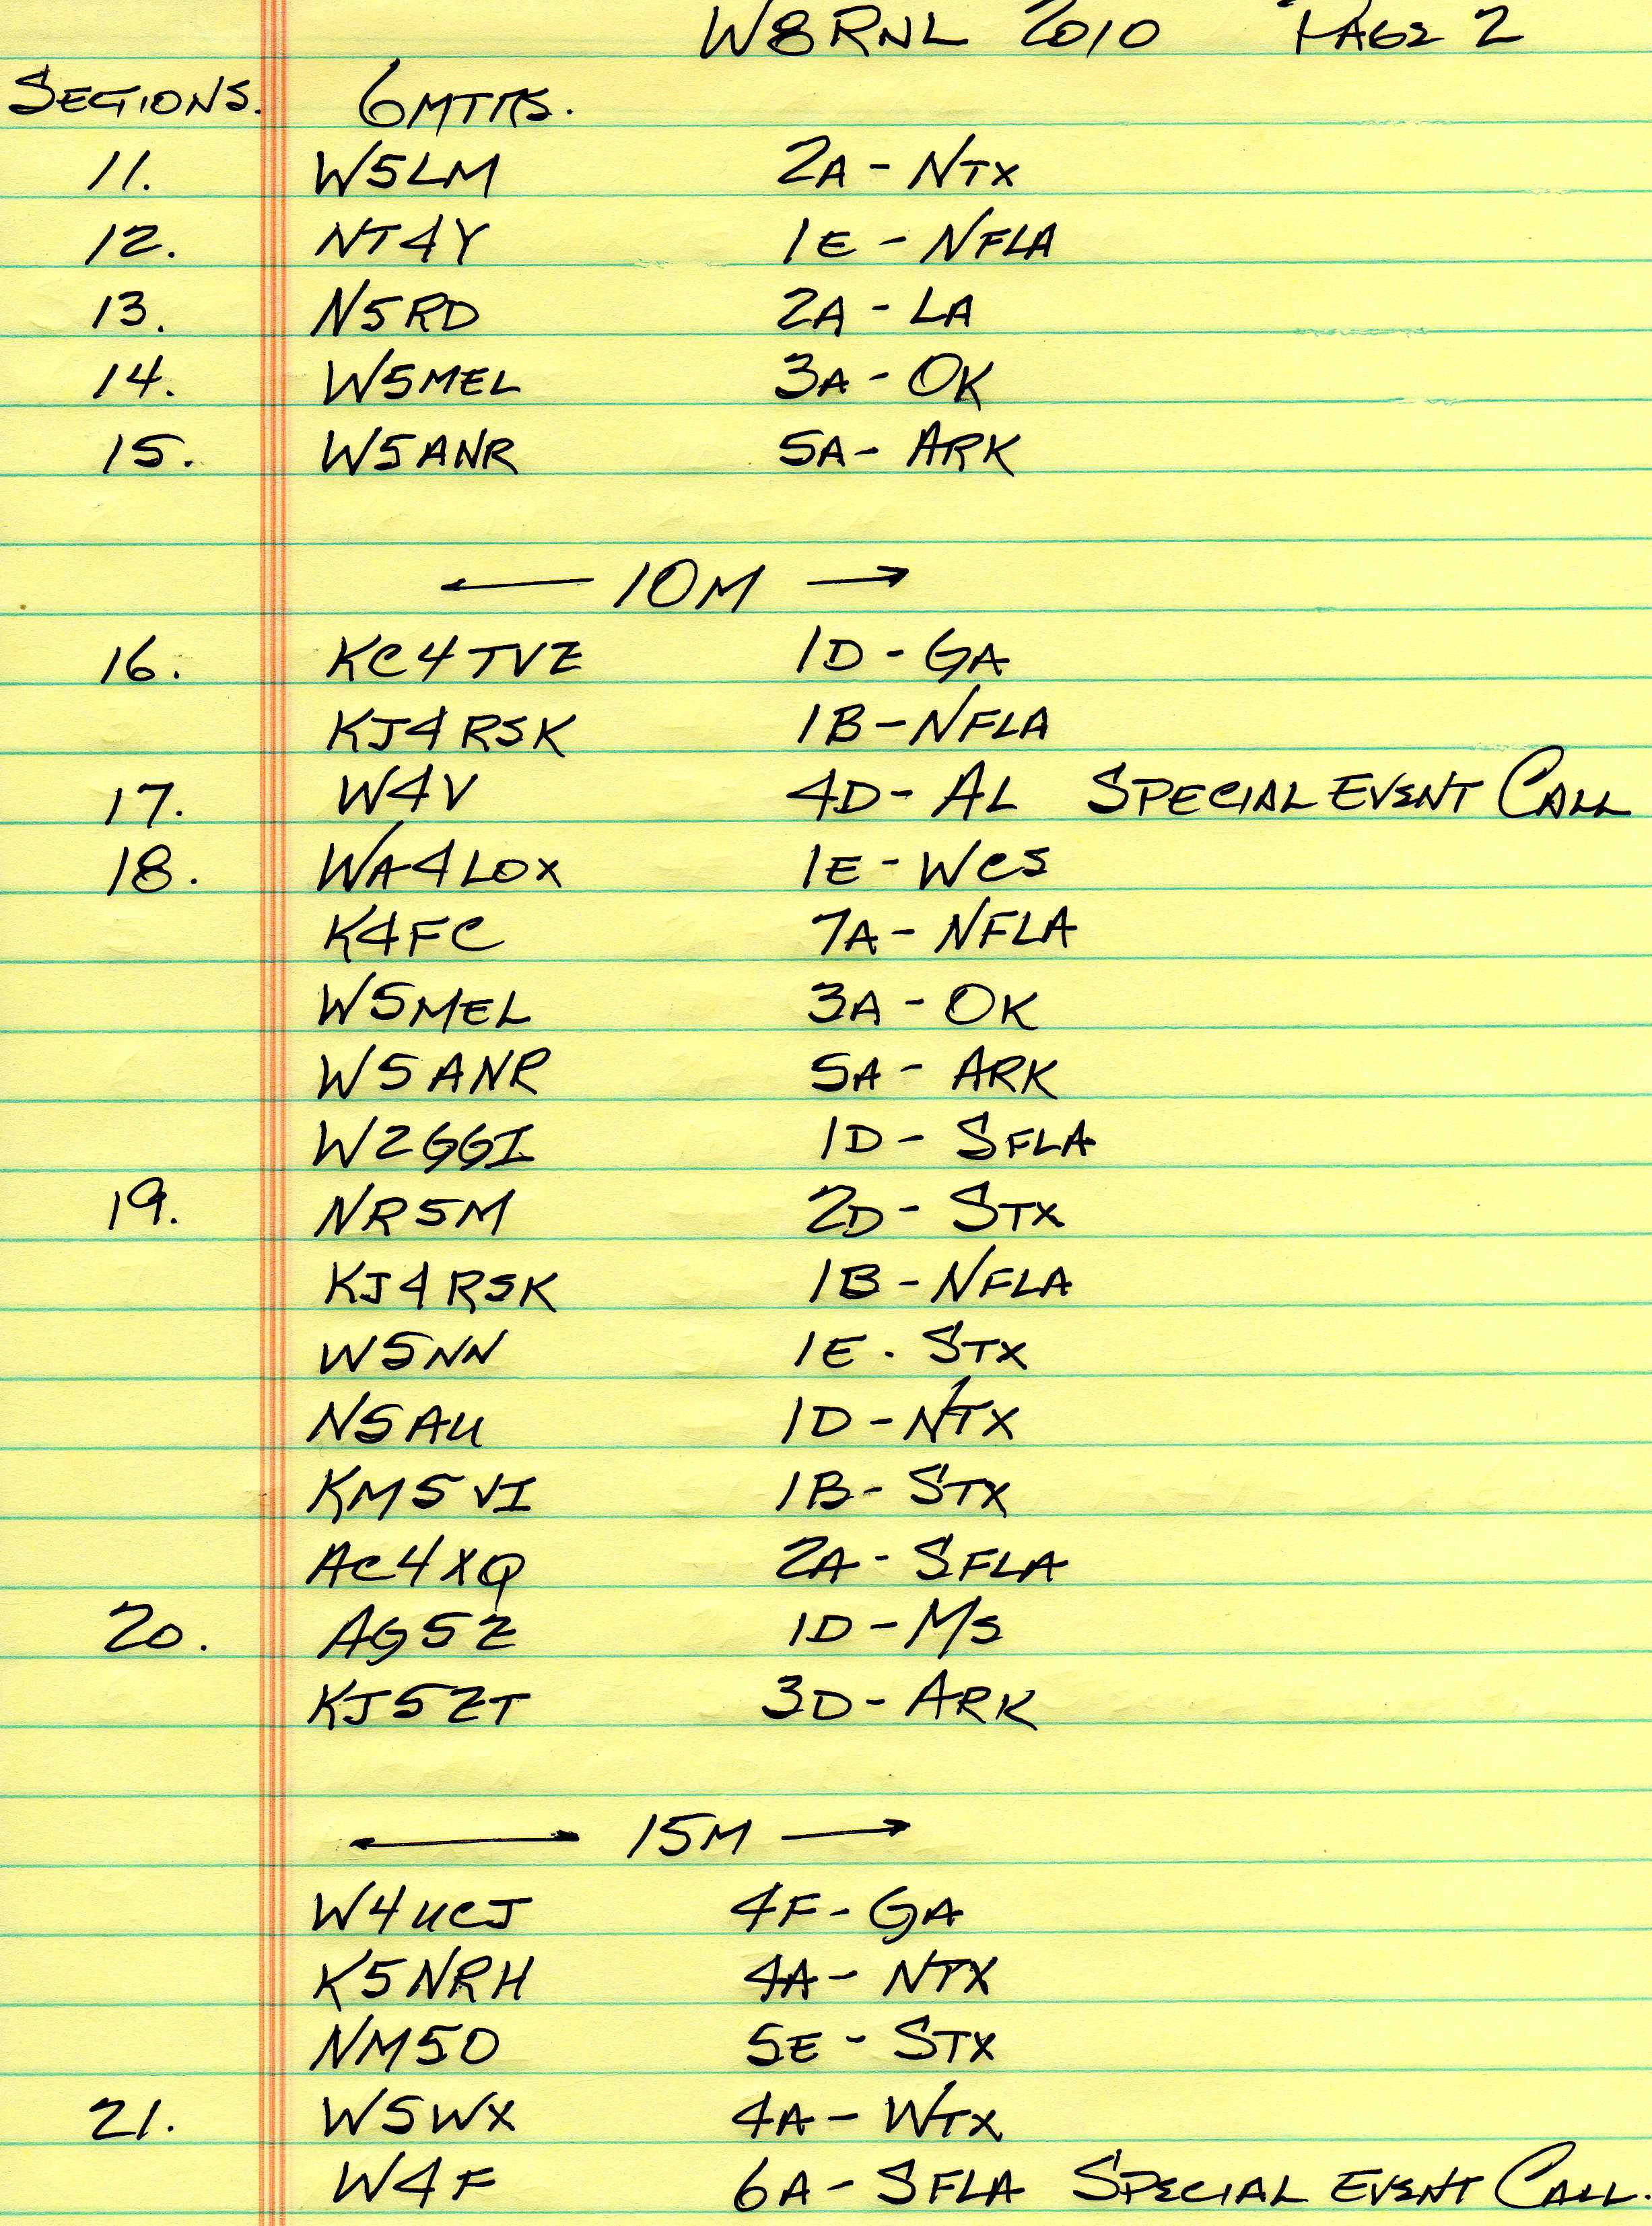 W8RNL 2010 PAGE 2
SECTIONS. 6MTRS.
11. W5LM 2A - NTX
12. NT4Y 1E - NFLA
13. N5RD 2A - LA
14. W5MEL 3A - OK
15. W5ANR 5A - ARK
← 10M →
16. KC4TVZ 1D - GA
KJ4RSK 1B - NFLA
17. W4V 4D - AL SPECIAL EVENT CALL
18. WA4LOX 1E - WCS
K4FC 7A - NFLA
W5MEL 3A - OK
W5ANR 5A - ARK
W2GGI 1D - SFLA
19. NR5M 2D - STX
KJ4RSK 1B - NFLA
W5NN 1E. STX
N5AU 1D - NTX
KM5VI 1B - STX
AC4XQ 2A - SFLA
20. AG5Z 1D - MS
KJ5ZT 3D - ARK
↔ 15M →
W4UCJ 4F - GA
K5NRH 4A - NTX
NM5O 5E - STX
21. W5WX 4A - WTX
W4F 6A - SFLA SPECIAL EVENT CALL.